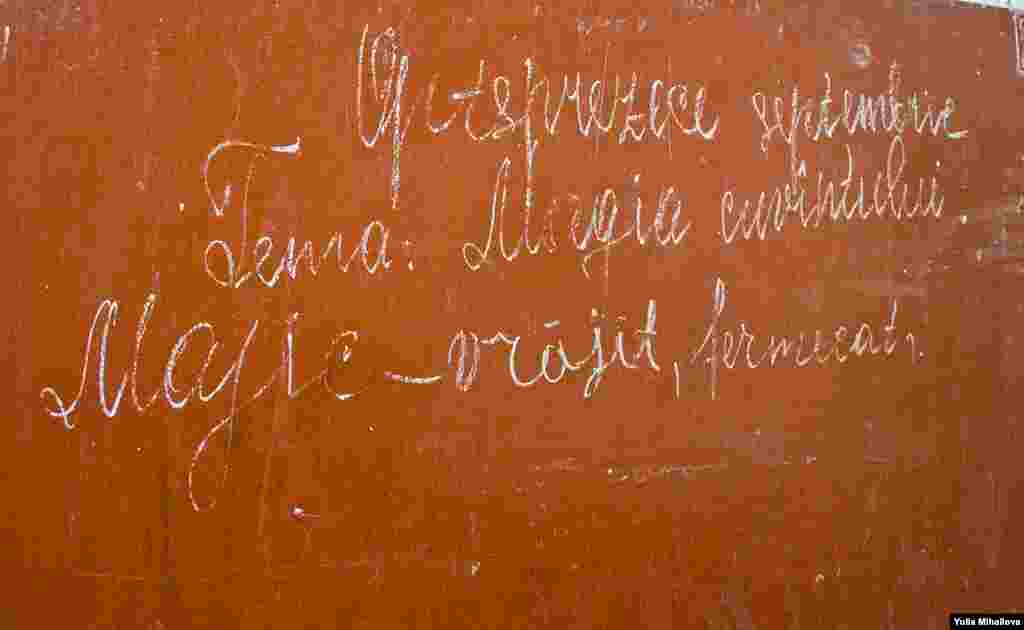 Optsprezece septembrie
Tema: Magia cuvîntului.
Magic – vrăjit, fermecat,
Yulia Mihailova